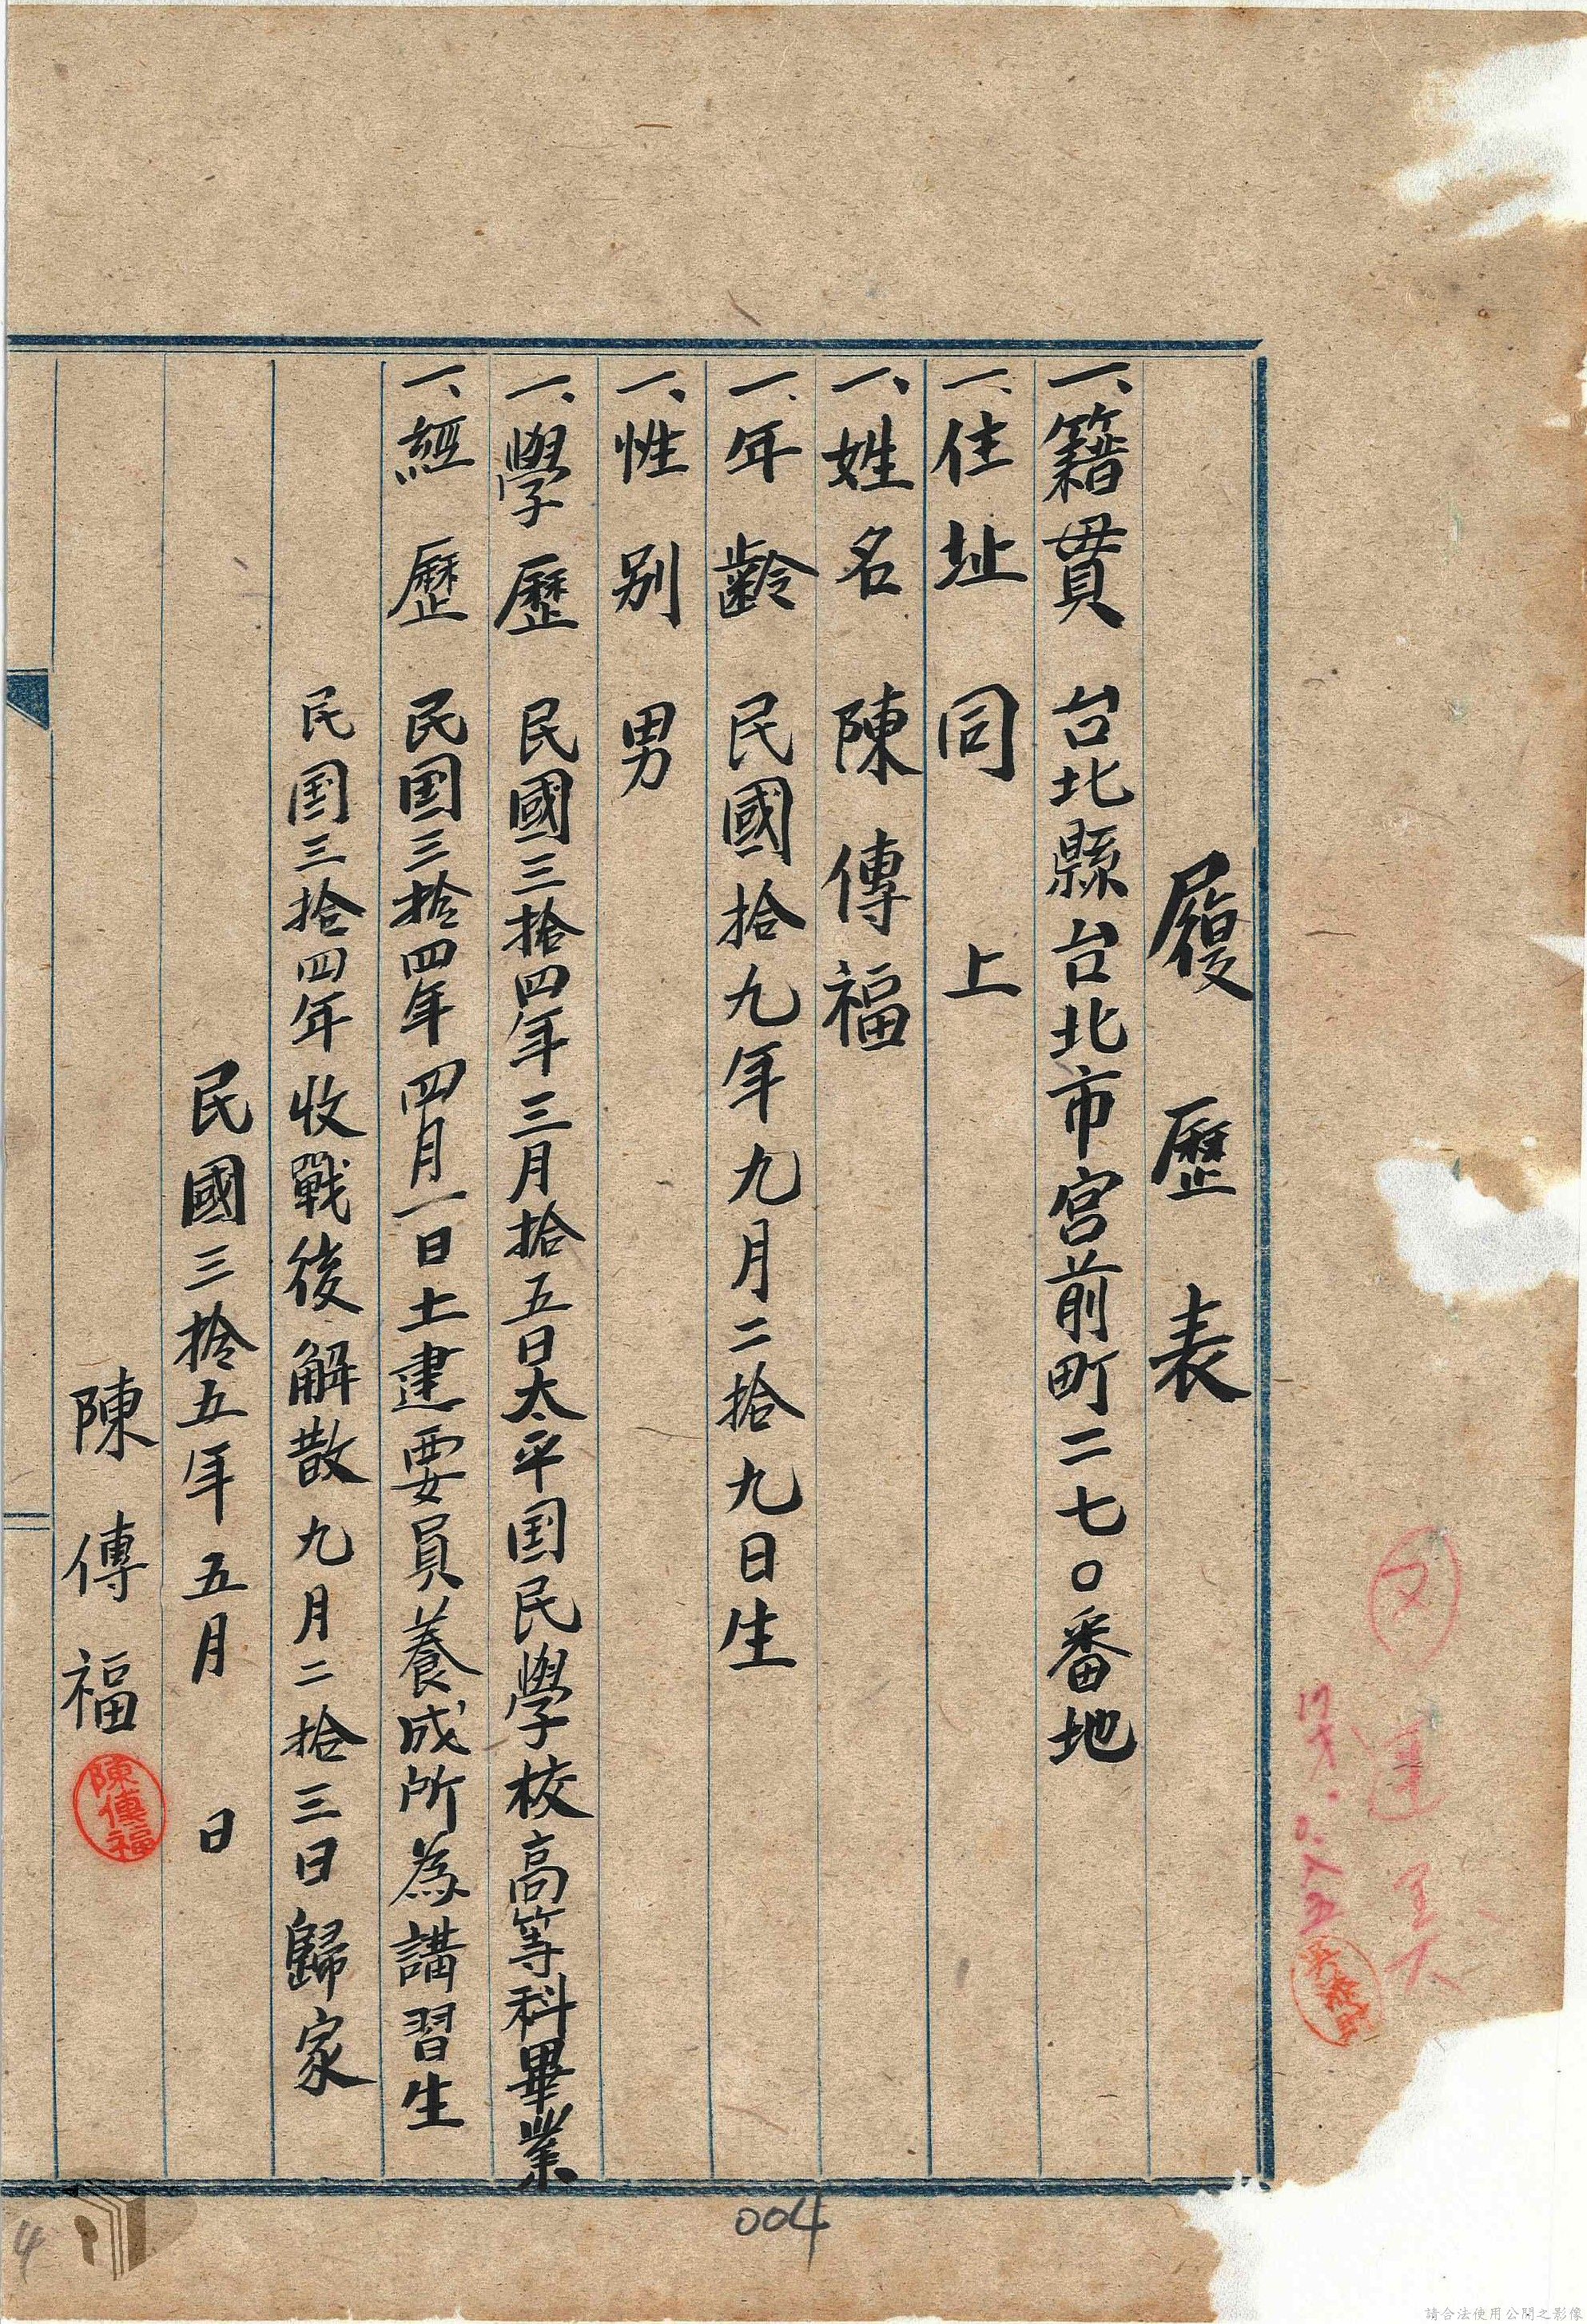 履歷表
一、籍貫 台北縣台北市宮前町二七〇番地
一、住址 同上
一、姓名 陳傳福
一、年齡 民國拾九年九月二拾九日生
一、性別 男
一、學歷 民國三拾四年三月拾五日太平国民學校高等科畢業
一、經歷 民国三拾四年四月一日土建要員養成所為講習生
民国三拾四年收戰後解散九月二拾三日歸家
民國三拾五年五月 日
陳傳福
陳傳福
004
4
請合法使用公開之影像